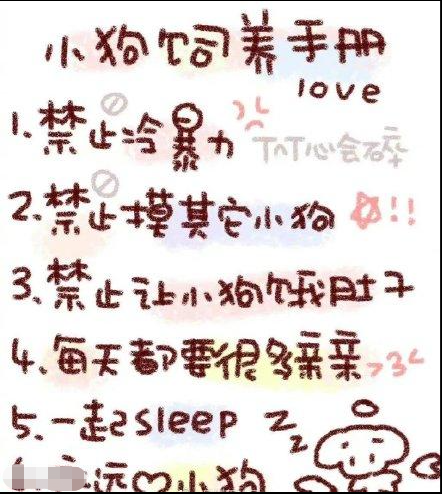 小狗饲养手册
love
1.禁止冷暴力 TnT心会碎
2.禁止摸其它小狗 !!
3.禁止让小狗饿肚子
4.每天都要很多亲亲 >3<
5.一起sleep zzz
远♡小狗